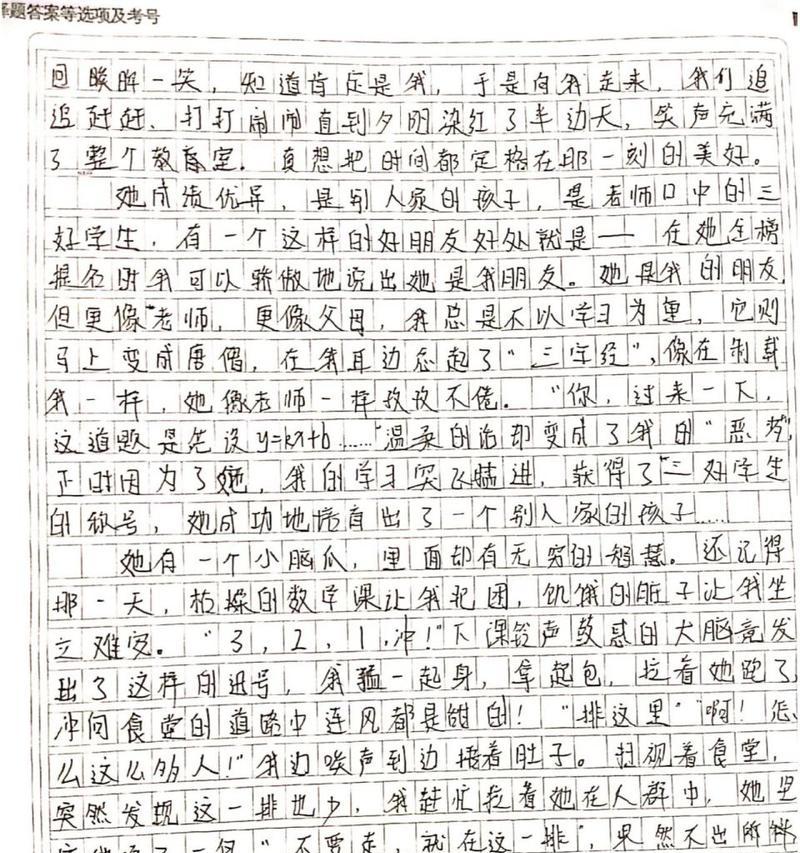 择题答案等选项及考号
回眸一笑，知道肯定是我，于是向我走来，我们追
追赶赶、打打闹闹直到夕阳染红了半边天，笑声充满
了整个教室。真想把时间都定格在那一刻的美好。
她成绩优异，是别人家的孩子，是老师口中的三
好学生，有一个这样的好朋友好处就是——在她金榜
提名时我可以骄傲地说出她是我朋友。她是我的朋友，
但更像"老师，更像父母，我总是不以学习为重，它则
马上变成唐僧，在我耳边念起了"三字经"，像在制裁
我一样，她像老师一样孜孜不倦。"你，过来一下，
这道题是先设y=kx+b……"温柔的话却变成了我的"恶梦"，
正时因为了她，我的学习突飞猛进，获得了"三好学生
的称号，她成功地培育出了一个别人家的孩子……
她有一个小脑瓜，里面却有无穷的智慧。还记得
那一天，枯燥的数学课让我犯困，饥饿的肚子让我坐
立难安。"3，2，1，冲！"下课铃声鼓惑的大脑竟发
出了这样的讯号，我猛一起身，拿起包，拉着她跑了，
冲向食堂的道路中连风都是甜的！"排这里""啊！怎
么这么多人！"我边唉声到边捂着肚子。扫视着食堂，
突然发现这一排也少，我赶忙拉着她在人群中，她坚
"不要走，就在这一排"，果然不出所料